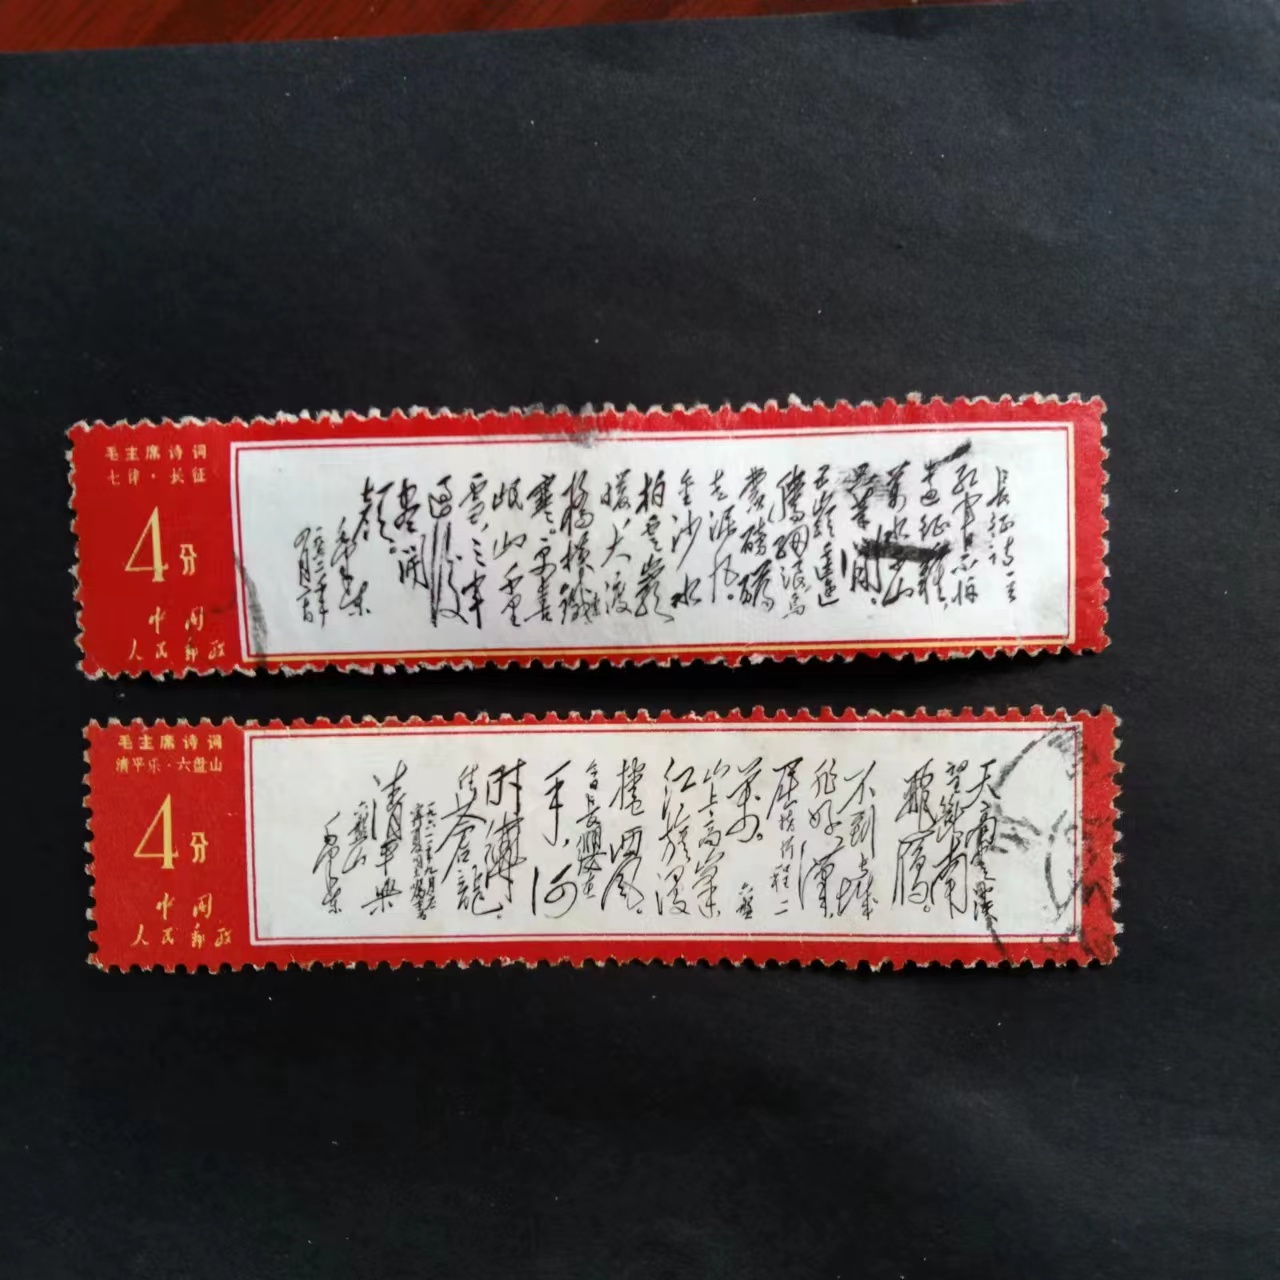 毛主席诗词
七律·长征
4分
中国
人民邮政
長征詩一首
紅軍不怕
遠征難，
萬水千山
只等閒。
五嶺逶迤
騰細浪，烏
蒙磅礴
走泥丸。
金沙水
拍雲崖
暖，大渡
橋橫鐵索
寒。更喜
岷山千里
雪，三軍
過後
盡開
顏。
毛澤東
毛主席诗词
清平乐·六盘山
4分
中国
人民邮政
天高雲淡，
望斷南
飛雁。
不到長城
非好漢，
屈指行程二
萬。六盤
山上高峯，
紅旗漫
捲西風。
今日長纓在
手，何
時縛
住蒼龍。
清平樂
六盤山
毛澤東